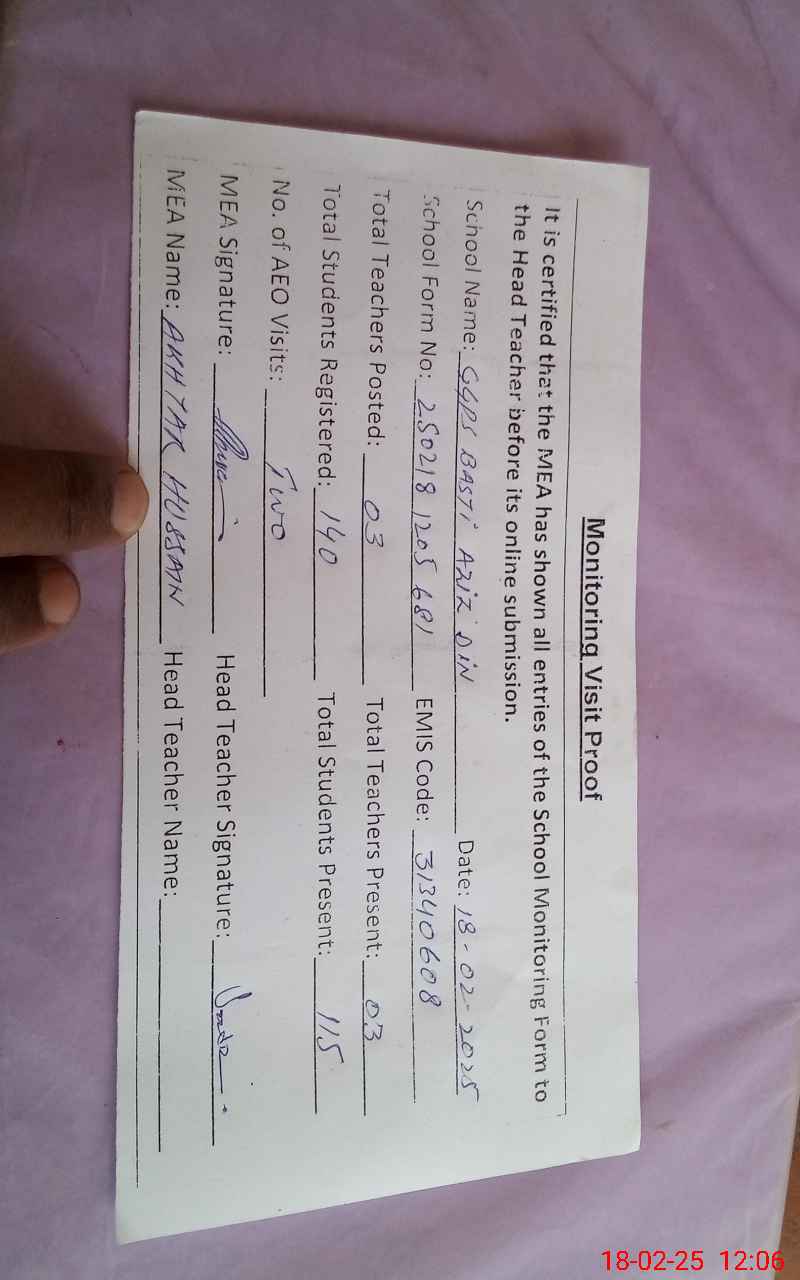 Monitoring Visit Proof
It is certified that the MEA has shown all entries of the School Monitoring Form to
the Head Teacher before its online submission.
School Name: GGPS BASTI AZIZ DIN Date: 18-02-2025
School Form No: 250218 1205 681 EMIS Code: 31340608
Total Teachers Posted: 03 Total Teachers Present: 03
Total Students Registered: 140 Total Students Present: 115
No. of AEO Visits: Two
MEA Signature: Head Teacher Signature:
MEA Name: AKHTAR HUSSAIN Head Teacher Name:
18-02-25 12:06